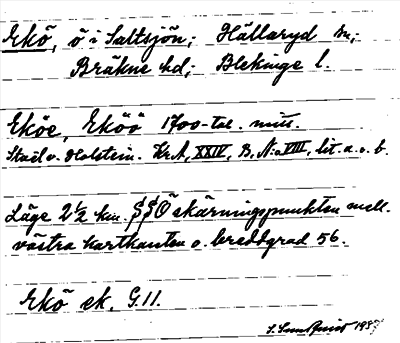 Ekö, ö i Saltsjön; Hällaryd sn;
Bräkne hd; Blekinge l.
Eköe, Eköö 1700-tal. mitt.
Stael v. Holstein. Kr. A, XXIV, B, N:o VIII, lit. a. o. b.
Läge 2½ km. SSÖ skärningspunkten mell.
västra kartkanten o. breddgrad 56.
Ekö ek. G. 11.